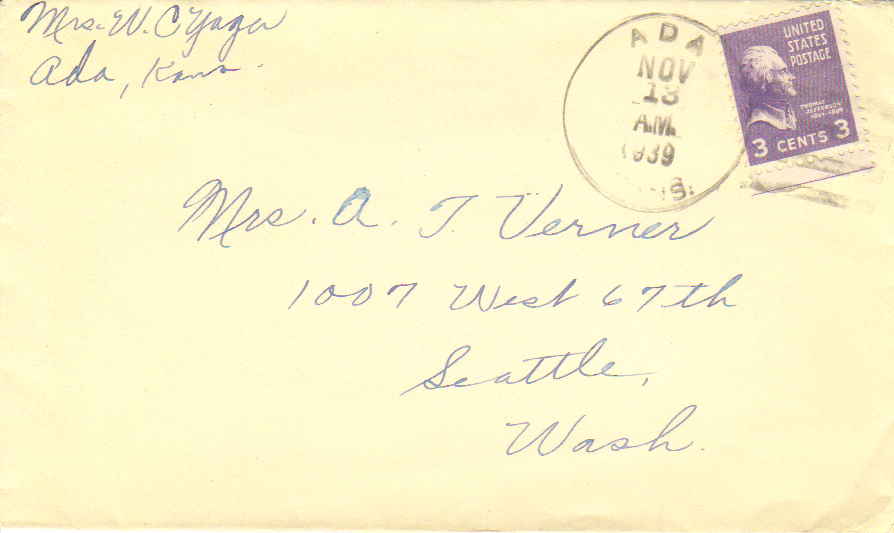 Mrs. W. C Yager
Ada, Kans.
ADA
NOV
13
A.M.
1939
UNITED
STATES
POSTAGE
THOMAS
JEFFERSON
3 CENTS 3
Mrs. A. T. Verner
1007 West 67th
Seattle,
Wash.